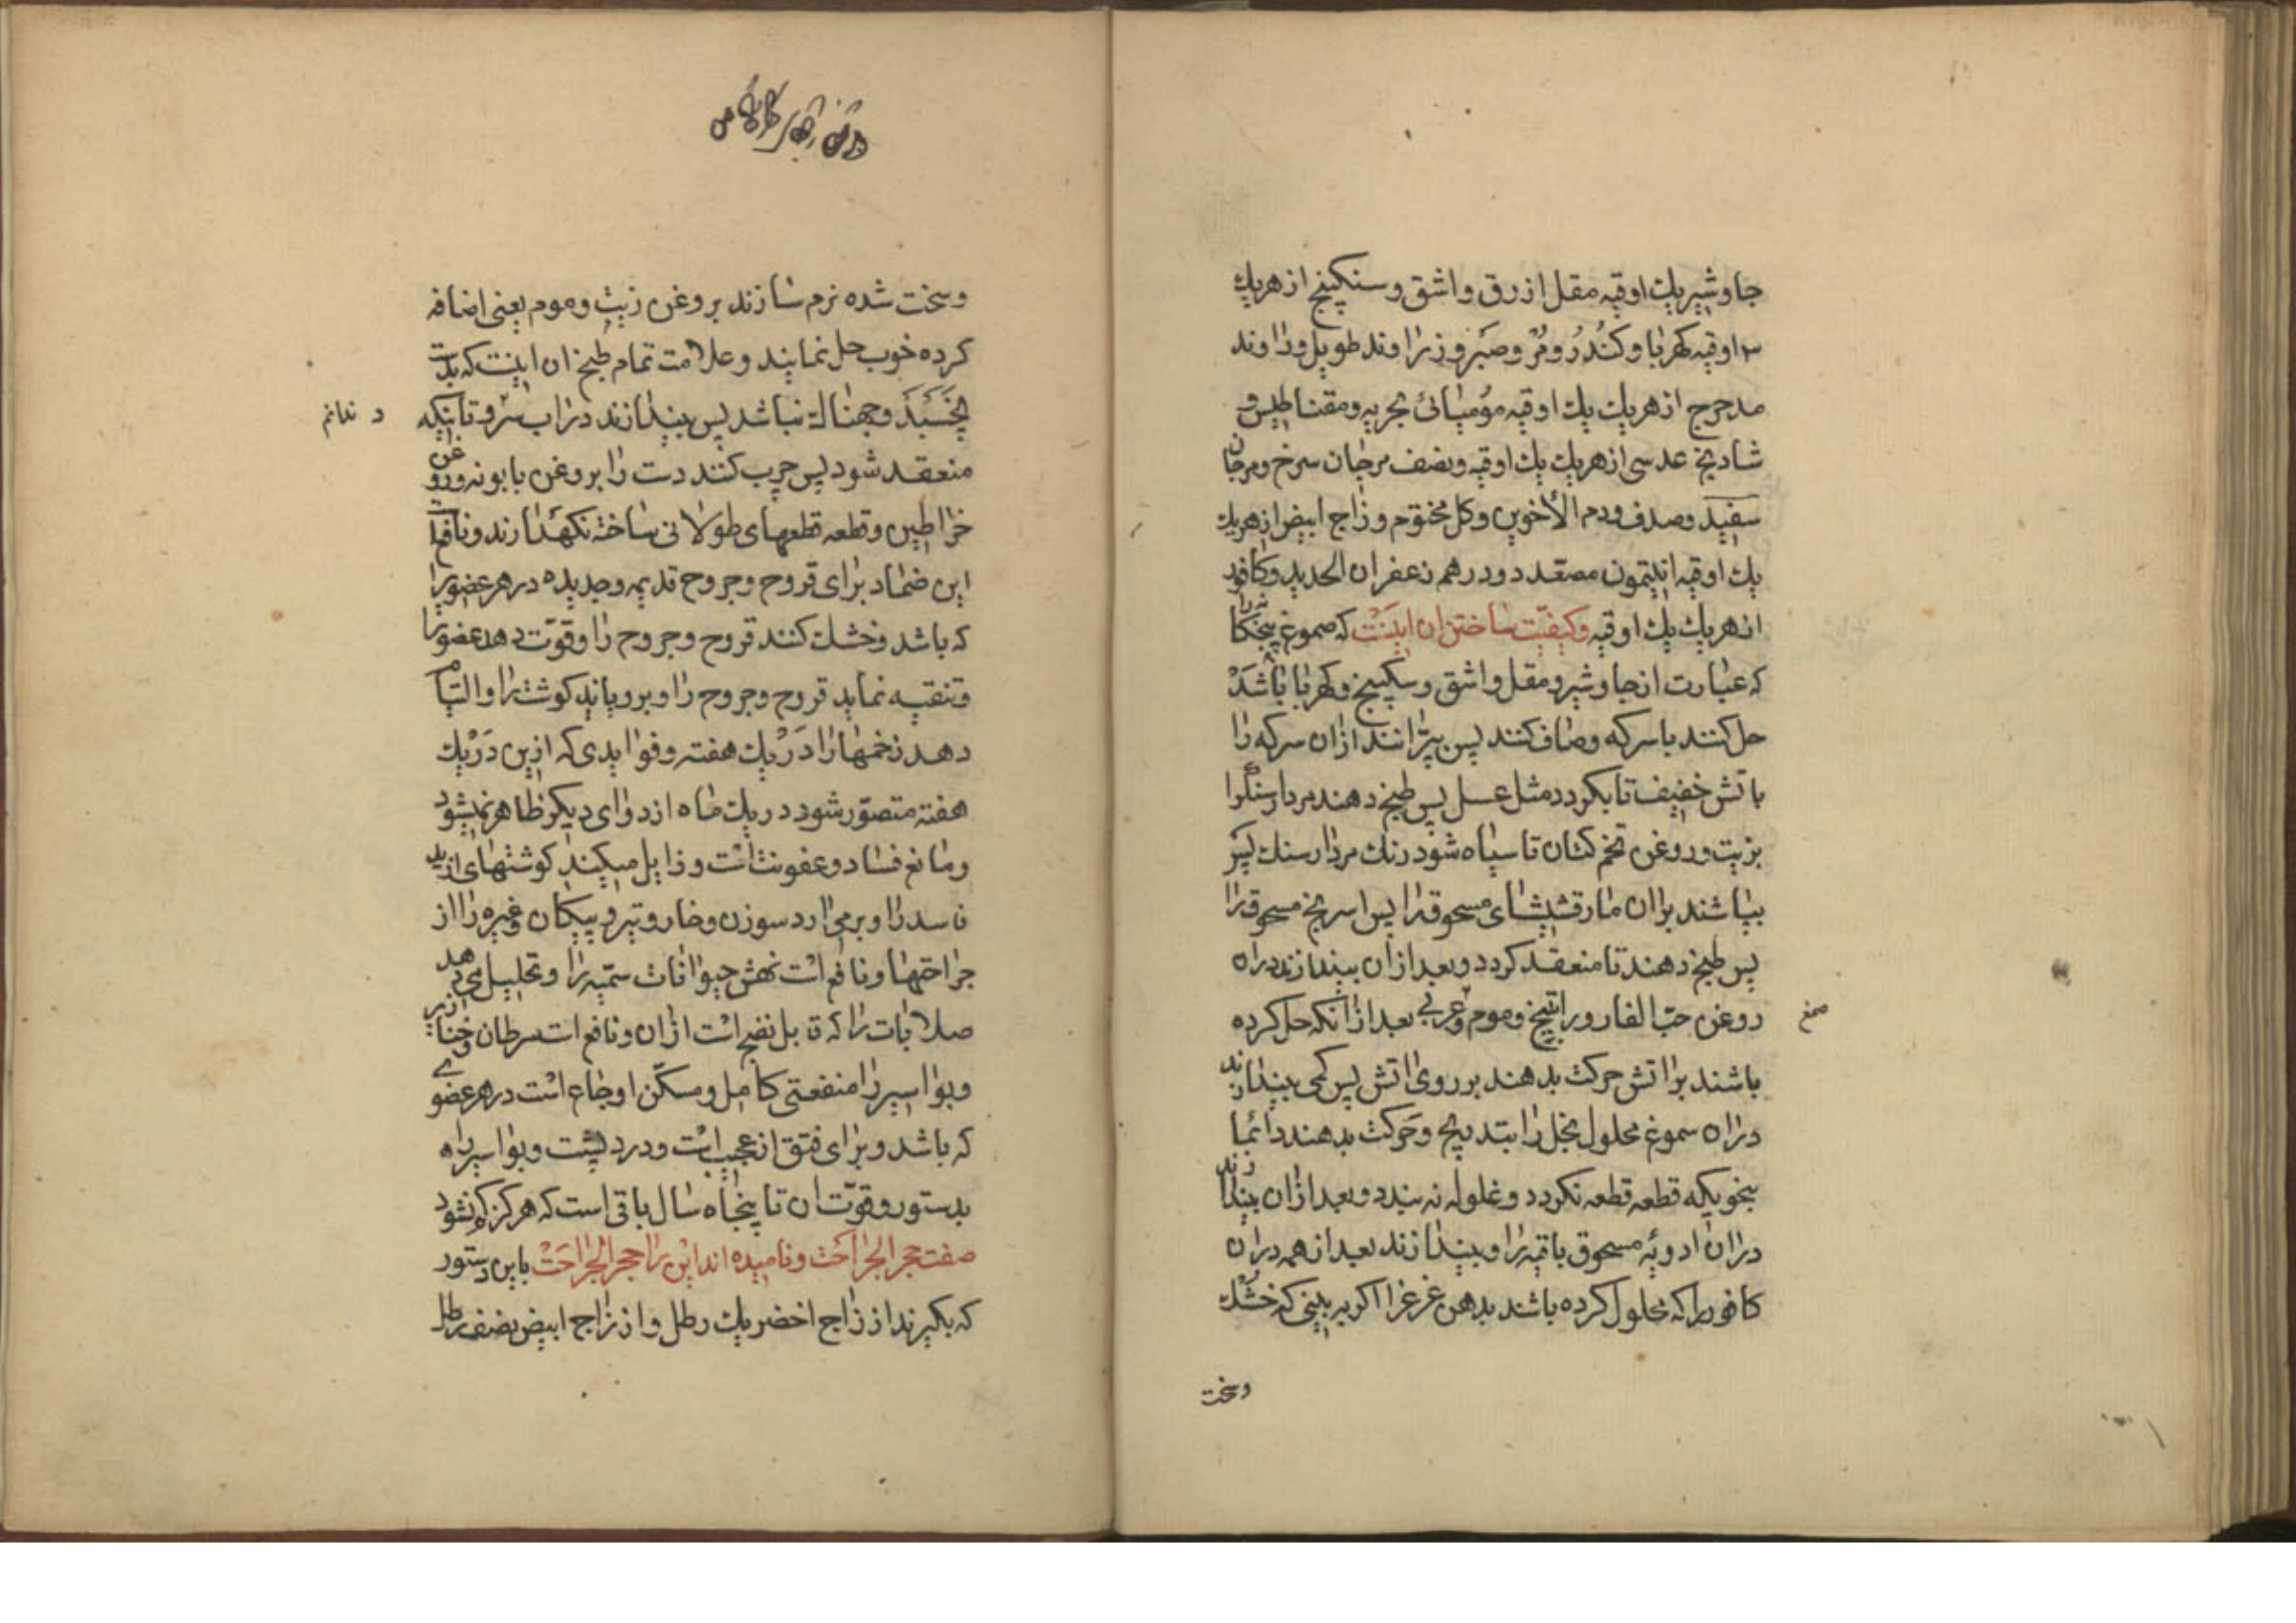 جاوشیر یك اوقیه مقل ازرق و اشق و سنکپنج از هریك
۳ اوقیه کهربا و کندُر و مُرّ و صَبِر و زراوند طویل و زراوند
مدحرج از هریك یك اوقیه مؤمیائی بحریه و مقناطیس و
شادنج عدسی از هریك یك اوقیه و نصف مرجان سرخ و مرجان
سفید و صدف و دم الأخوین و کل مختوم و زاج ابیض از هریك
یك اوقیه انتیمون مصعّد دو درهم زعفران الحدید و کافور
از هریك یك اوقیه و کیفیّت ساختن ان اینَست که صموغ پنجکانه را
که عبارت از جاوشیر و مقل و اشق و سکبینج و کهربا باشَدْ
حل کنند با سرکه و صاف کنند پس بپّرانند ازان سرکه را
باتش خفیف تا بکردد مثل عسل پس طبخ دهند مردارسنگرا
بزیت و روغن تخم کتان تا سیاه شود رنك مردارسنك پس
بپاشند بران مارقشیشای مسحوقرا پس اسرنج مسحوقرا
پس طبخ دهند تا منعقد کردد و بعد ازان بیندازند دران
روغن حبّ الغار و راتینج و موم و عربی بعد ازانکه حل کرده
صمغ
باشند بر اتش حرکت بدهند بر روی اتش پس کمی بیندازند
دران سموغ محلول بخل را بتدریج و حَرکت بدهند دائما
بنحویکه قطعه قطعه نکردد و غلوله نه بندد و بعد ازان بیندازند
دران ادویهٔ مسحوق باقیه را و بیندازند بعد از همه دران
کافور را که محلول کرده باشند بدهن غرغرا اکر به بینی که خشك
و سخت
و سخت شده نرم سازند بروغن زیت و موم یعنی اضافه
کرده خوب حل نمایند و علامت تمام طبخ ان اینست که بدست
بچَسبَدَ و چهناله نباشد پس بیندازند دراب سرد تا بنکه
د ندانم
منعقد شود پس چرب کنند دست را بروغن بابونه و روغن
خراطین و قطعه قطعهای طولانی ساخته نکهدارند و نافع است
این ضماد برای قروح و جروح قدیمه و جدیده در هر عضویرا
که باشد و خشك کنند قروح و جروح را و قوّت دهد عضورا
و تنقیه نماید قروح و جروح را و برویاند کوشترا و التیام
دهد زخمهارا دَرْ یك هفته و فوایدی که ازین دَرْ یك
هفته متصوّر شود در یك ماه از دوای دیکر ظاهر نمیشود
و مانع فساد و عفونت است و زایل میکند کوشتهای زاید
فاسد را و برمی ارد سوزن و خار و تیر و پیکان و غیره را از
جراحتها و نافع است نهش حیوانات سمّیه را و تحلیل می دهد
صلابات را که قابل نضج است ازان و نافع است سرطان و خنازیر
و بواسیر را منفعتی کامل و مسکّن اوجاع است در هر عضوی
که باشد و برای فتق از عجیب است و درد پشت و بواسیر را
بدستور و قوّت ان تا پنجاه سال باقی است که هرکز کم نشود
صفت حجر الجراحَت و نامیده اند این را حجر الجراحَتْ باین دستور
که بکیرند از زاج اخضر یك رطل و از زاج ابیض نصف رطل